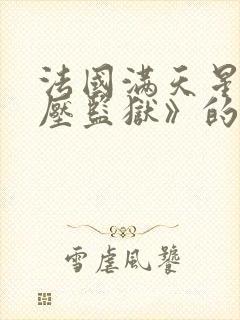 法國滿天星
壓監獄》的
雪虐風饕